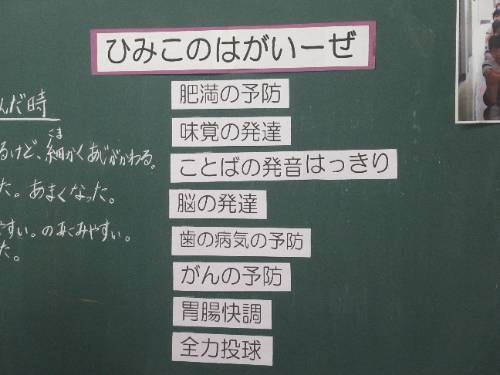 ひみこのはがいーぜ
肥満の予防
味覚の発達
ことばの発音はっきり
脳の発達
歯の病気の予防
がんの予防
胃腸快調
全力投球
んだ時
るけど、細かくあじがかわる。
くま
た。あまくなった。
やすい。のみこみやすい。
た。